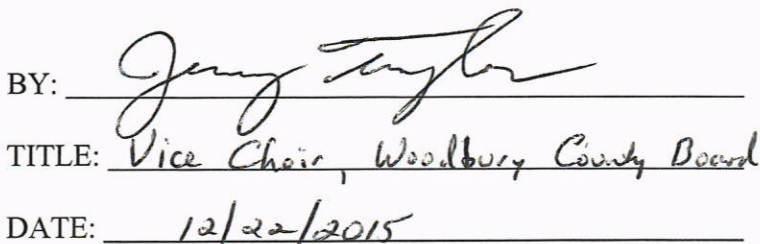 BY: Jeremy Taylor
TITLE: Vice Chair, Woodbury County Board
DATE: 12/22/2015